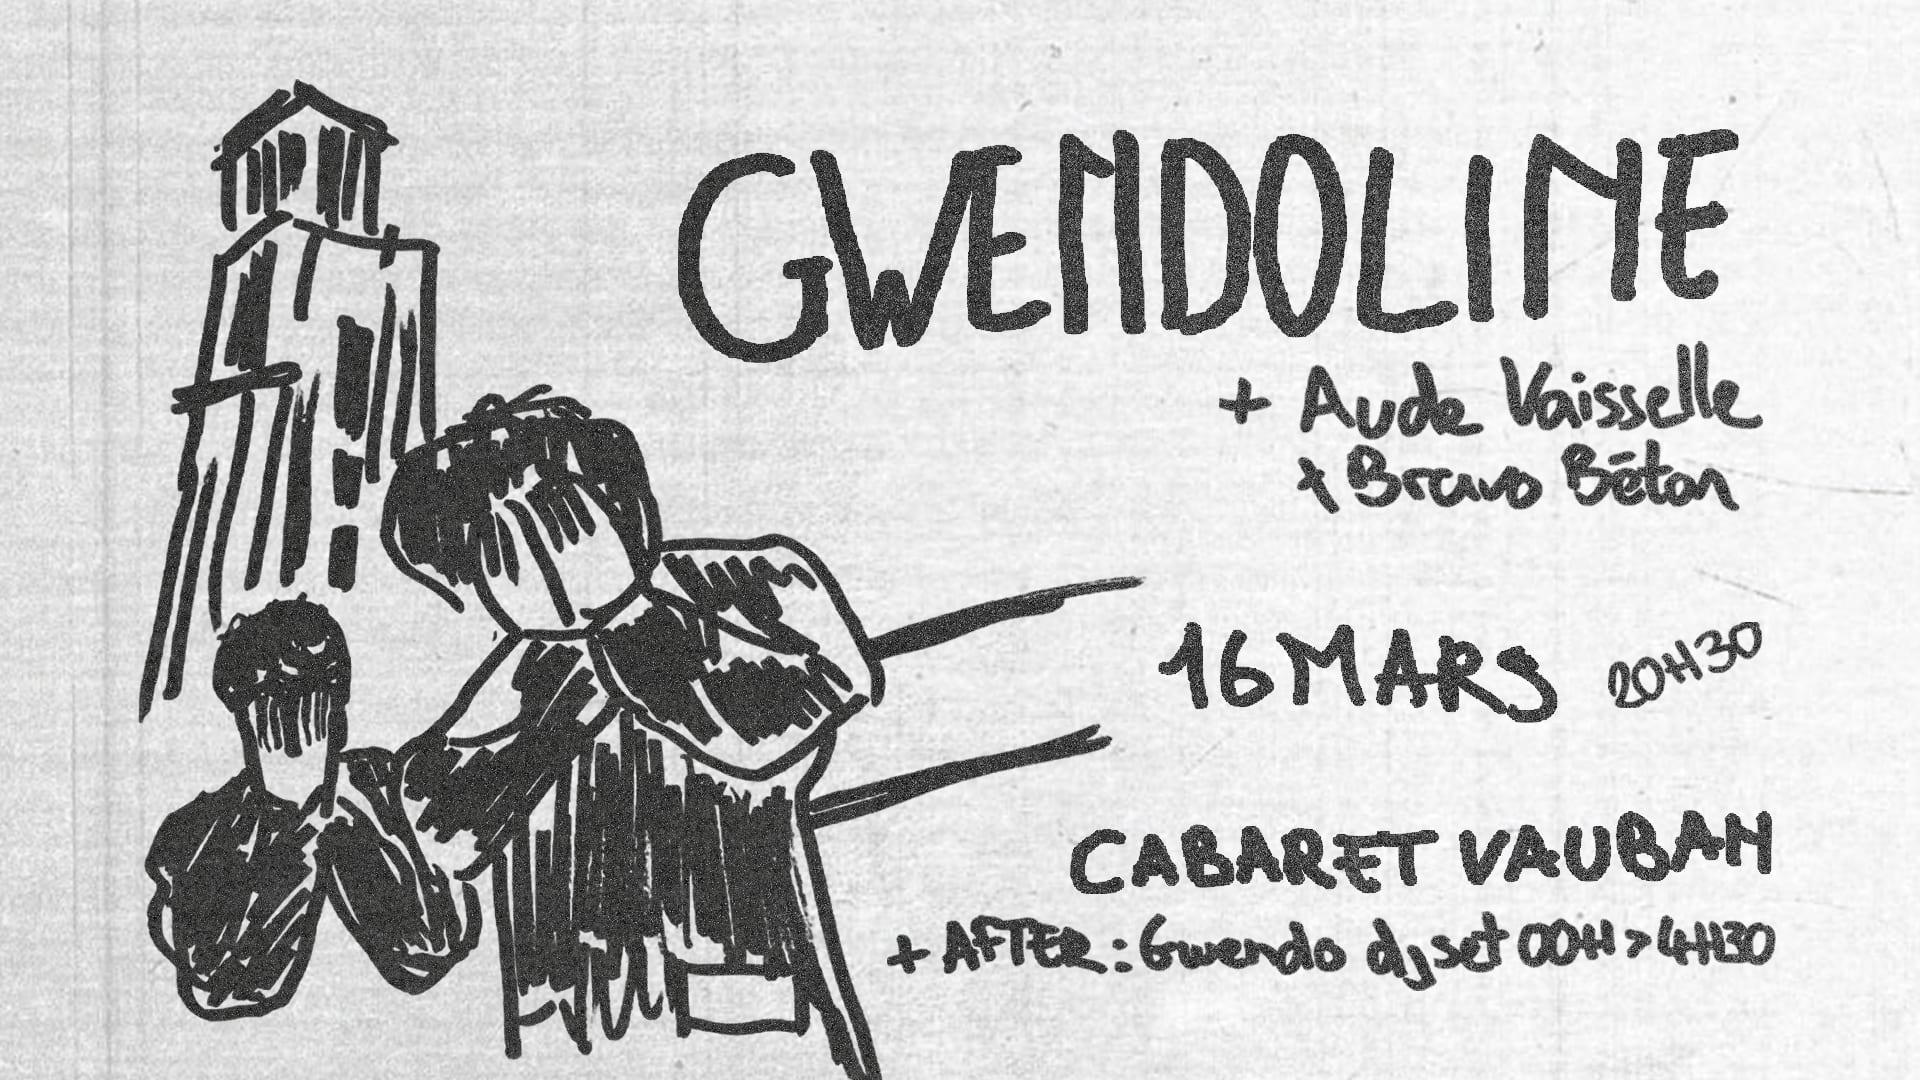 GWENDOLINE
+ Aude Vaisselle
+ Bravo Béton
16 MARS 20H30
CABARET VAUBAN
+ AFTER : Gwendo dj set 00H > 4H30